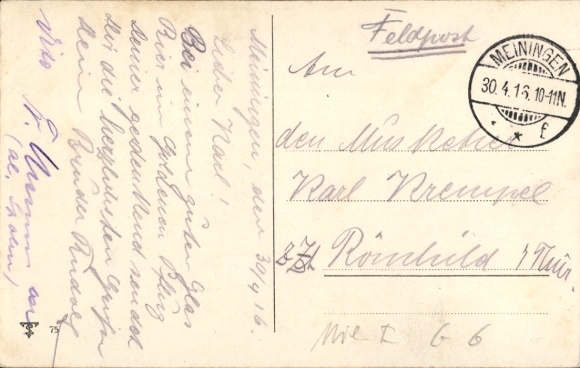 Meiningen, den 30/4 16.
Lieber Karl!
Bei einem guten Glas
Bier im goldenen Pflug
Deiner gedenkend sendet
Dir die herzlichsten Grüße
Dein Bruder Rudolf
Feldpost
MEININGEN
30.4.16. 10-11N.
* f
An
den Musketier
Karl Krempel
z. Zt. Römhild / Thür.
6 6
75